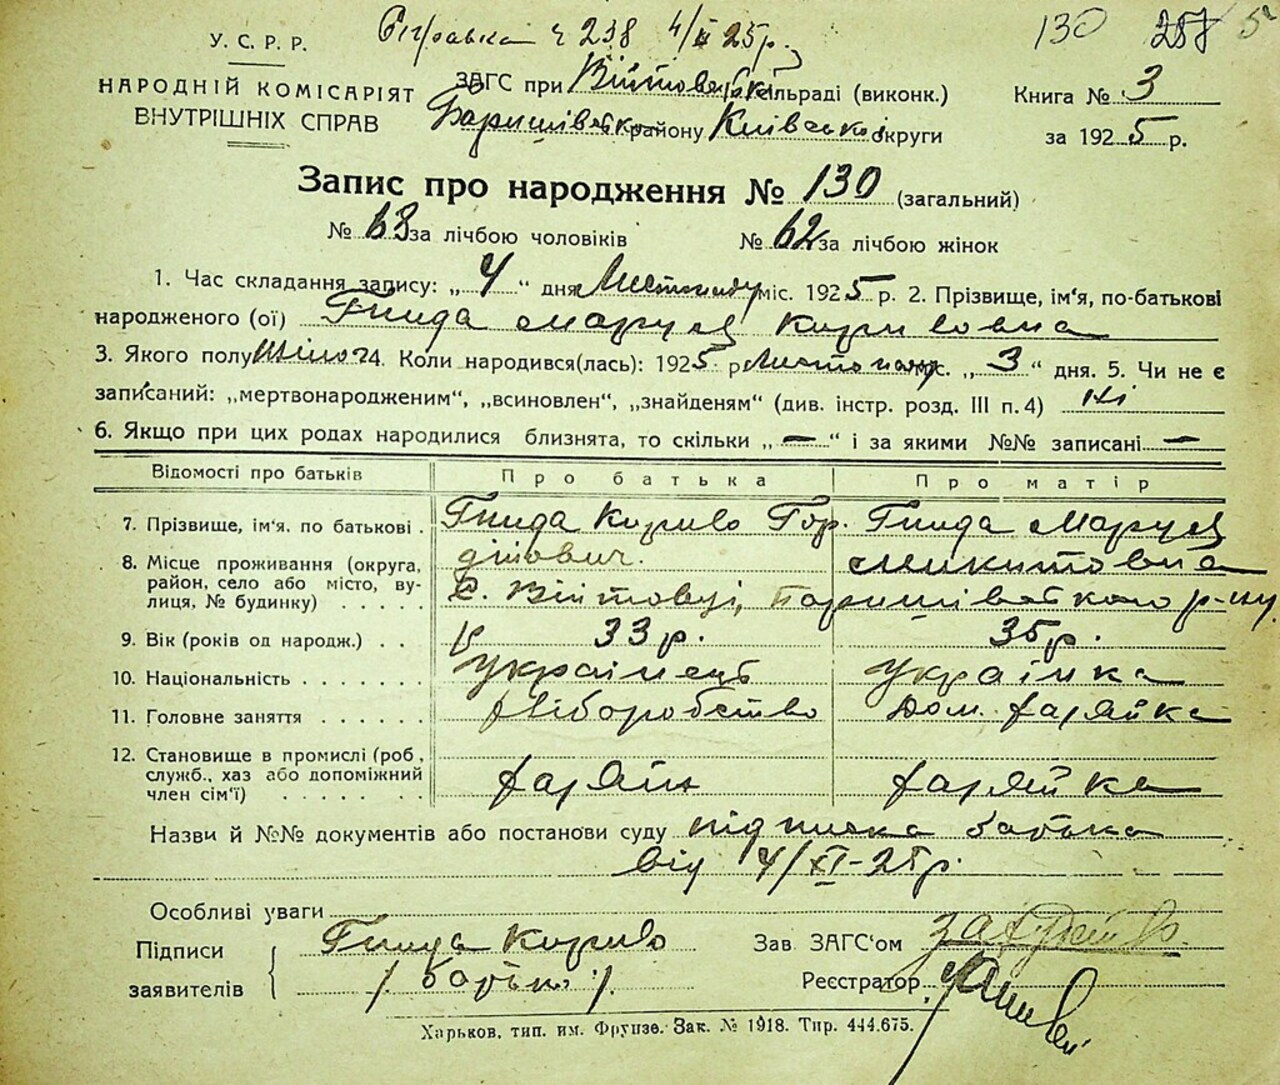 У. С. Р. Р.
НАРОДНІЙ КОМІСАРІЯТ
ВНУТРІШНІХ СПРАВ
Справка ч 238 4/XI 25р.
130 257
ЗАГС при Війтовецькій сільраді (виконк.)
Баришівськ району Київської округи
Книга № 3
за 1925 р.
Запис про народження № 130 (загальний)
№ 68 за лічбою чоловіків № 62 за лічбою жінок
1. Час складання запису: „ 4 “ дня Листопаду міс. 1925 р. 2. Прізвище, ім'я, по-батькові
народженого (ої) Гнида Маруся Кириловна
3. Якого полу Жіноч 4. Коли народився(лась): 1925 р Листопаду міс. „ 3 “ дня. 5. Чи не є
записаний: „мертвонародженим“, „всиновлен“, „знайденям“ (див. інстр. розд. III п. 4) Ні
6. Якщо при цих родах народилися близнята, то скільки „ — “ і за якими №№ записані —
Відомості про батьків Про батька Про матір
7. Прізвище, ім'я. по батькові . Гнида Кирило Гор. Гнида Маруся
дійович. Микитовна
8. Місце проживання (округа,
район, село або місто, ву-
лиця, № будинку) . . . . . С. Війтовці, Баришівського р-ну
9. Вік (років од народж.) . . 33 р. 35 р.
10. Національність . . . . . . Українець Українка
11. Головне заняття . . . . . . Хліборобство Дом. хазяйка
12. Становище в промислі (роб,
служб., хаз або допоміжний
член сім'ї) . . . . . . хазяїн хазяйка
Назви й №№ документів або постанови суду підписка батька
від 4/XI-25р.
Особливі уваги
Підписи
заявителів
Гнида Кирило
/батько/.
Зав. ЗАГС'ом
Реєстратор
Харьков, тип. им. Фрунзе. Зак. № 1918. Тир. 444.675.